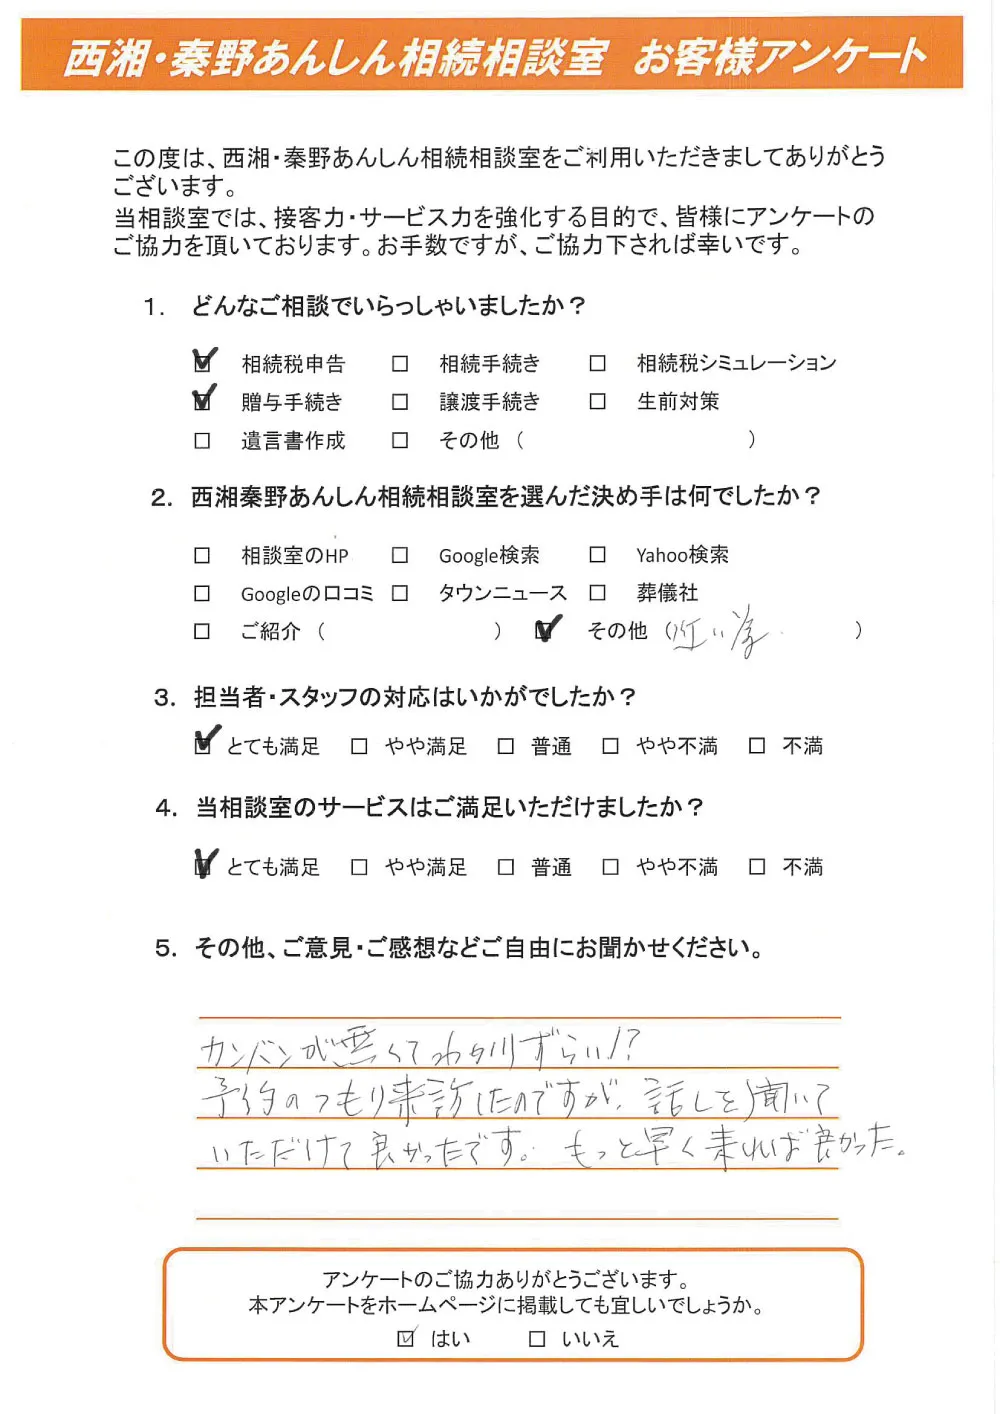 西湘・秦野あんしん相続相談室 お客様アンケート
この度は、西湘・秦野あんしん相続相談室をご利用いただきましてありがとう
ございます。
当相談室では、接客力・サービス力を強化する目的で、皆様にアンケートの
ご協力を頂いております。お手数ですが、ご協力下されば幸いです。
1. どんなご相談でいらっしゃいましたか？
☑ 相続税申告 □ 相続手続き □ 相続税シミュレーション
☑ 贈与手続き □ 譲渡手続き □ 生前対策
□ 遺言書作成 □ その他（ ）
2. 西湘秦野あんしん相続相談室を選んだ決め手は何でしたか？
□ 相談室のHP □ Google検索 □ Yahoo検索
□ Googleの口コミ □ タウンニュース □ 葬儀社
□ ご紹介（ ） ☑ その他（近い ）
3. 担当者・スタッフの対応はいかがでしたか？
☑ とても満足 □ やや満足 □ 普通 □ やや不満 □ 不満
4. 当相談室のサービスはご満足いただけましたか？
☑ とても満足 □ やや満足 □ 普通 □ やや不満 □ 不満
5. その他、ご意見・ご感想などご自由にお聞かせください。
カンバンが悪くてわかりずらい!?
予約のつもり来訪したのですが、話しを聞いて
いただけて良かったです。もっと早く来れば良かった。
アンケートのご協力ありがとうございます。
本アンケートをホームページに掲載しても宜しいでしょうか。
☑ はい □ いいえ